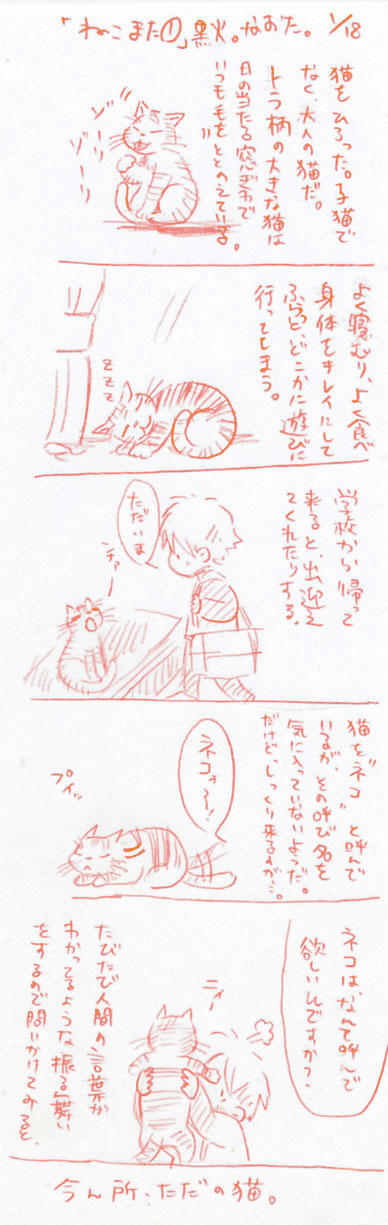 「ねこまた①」黒火。なおた。 1/18
猫をひろった。子猫で
なく、大人の猫だ。
トラ柄の大きな猫は
日の当たる窓ぎわで
いつも毛をととのえている。
ゾーリ
ゾーリ
よく寝むり、よく食べ
身体をキレイにして
ふらっと、どこかに遊びに
行ってしまう。
zzz
学校から帰って
来ると、出迎え
てくれたりする。
ただいま
ナァー
猫を〝ネコ〟と呼んで
いるが、その呼び名を
気に入っていないようだ。
だけど、しっくり来るすが…。
ネコォ〜!
プイッ
ネコはなんて呼んで
欲しいんですか?
ニィー
たびたび人間の言葉が
わかってるような振る舞い
をするので問いかけてみると、
今ん所、ただの猫。